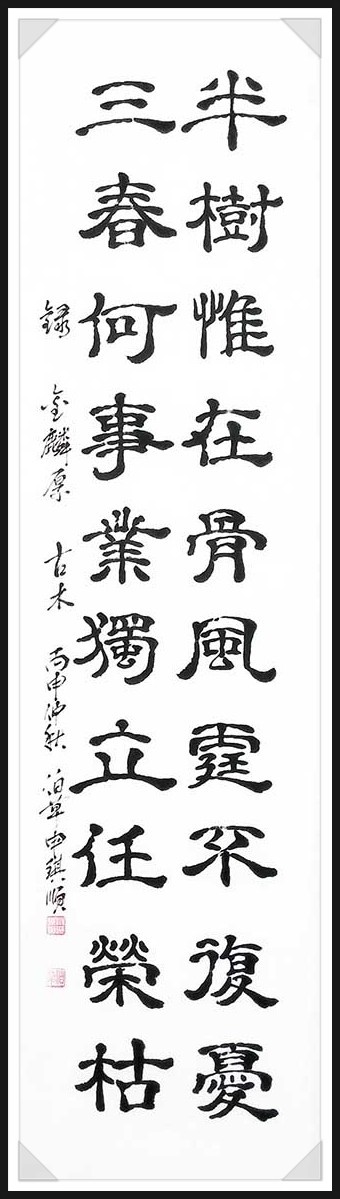 半樹惟在骨風霆不復憂
三春何事業獨立任榮枯
錄 金麟厚 古木 丙申仲秋 順